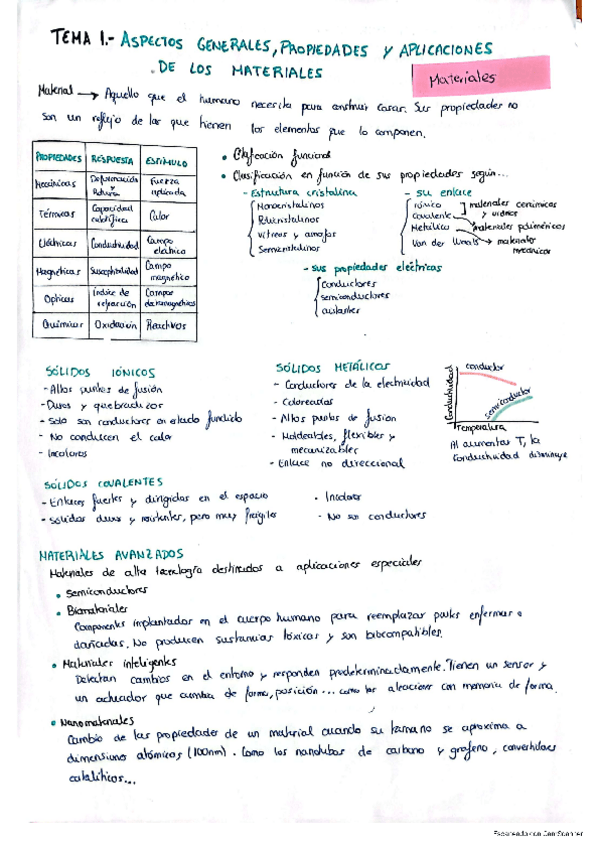 TEMA 1.- ASPECTOS GENERALES, PROPIEDADES Y APLICACIONES
DE LOS MATERIALES
Materiales
Material → Aquello que el humano necesita para construir cosas. Sus propiedades no
son un reflejo de las que tienen los elementos que lo componen.
PROPIEDADES RESPUESTA ESTÍMULO
Mecánicas Deformación y Rotura Fuerza aplicada
Térmicas Capacidad calorífica Calor
Eléctricas Conductividad Campo eléctrico
Magnéticas Susceptibilidad Campo magnético
Ópticas Índice de refracción Campos electromagnéticos
Químicas Oxidación Reactivos
• Clasificación funcional
• Clasificación en función de sus propiedades según...
- Estructura cristalina
Monocristalinos
Policristalinos
vítreos y amorfos
Semicristalinos
- su enlace
iónico
Covalente
materiales cerámicos y vidrios
Metálico
materiales poliméricos
Van der Waals
materiales
- sus propiedades eléctricas
conductores
semiconductores
aislantes
SÓLIDOS IÓNICOS
- Altos puntos de fusión
- Duros y quebradizos
- Solo son conductores en estado fundido
- No conducen el calor
- Incoloros
SÓLIDOS METÁLICOS
- Conductores de la electricidad
- Coloreados
- Altos puntos de fusión
- Moldeables, flexibles y
mecanizables
- Enlace no direccional
conductor
semiconductor
Conductividad
Temperatura
Al aumentar T, la
conductividad disminuye
SÓLIDOS COVALENTES
- Enlaces fuertes y dirigidos en el espacio
- Sólidos duros y resistentes, pero muy frágiles
• Incoloros
- No son conductores
MATERIALES AVANZADOS
Materiales de alta tecnología destinados a aplicaciones especiales
• Semiconductores
• Biomateriales
Componentes implantados en el cuerpo humano para reemplazar partes enfermas o
dañadas. No producen sustancias tóxicas y son biocompatibles.
• Materiales inteligentes
Detectan cambios en el entorno y responden predeterminadamente. Tienen un sensor y
un actuador que cambia de forma, posición... como las aleaciones con memoria de forma.
• Nanomateriales
Cambio de las propiedades de un material cuando su tamaño se aproxima a
dimensiones atómicas (100nm). Como los nanotubos de carbono y grafeno, convertidores
catalíticos...
Escaneado con CamScanner